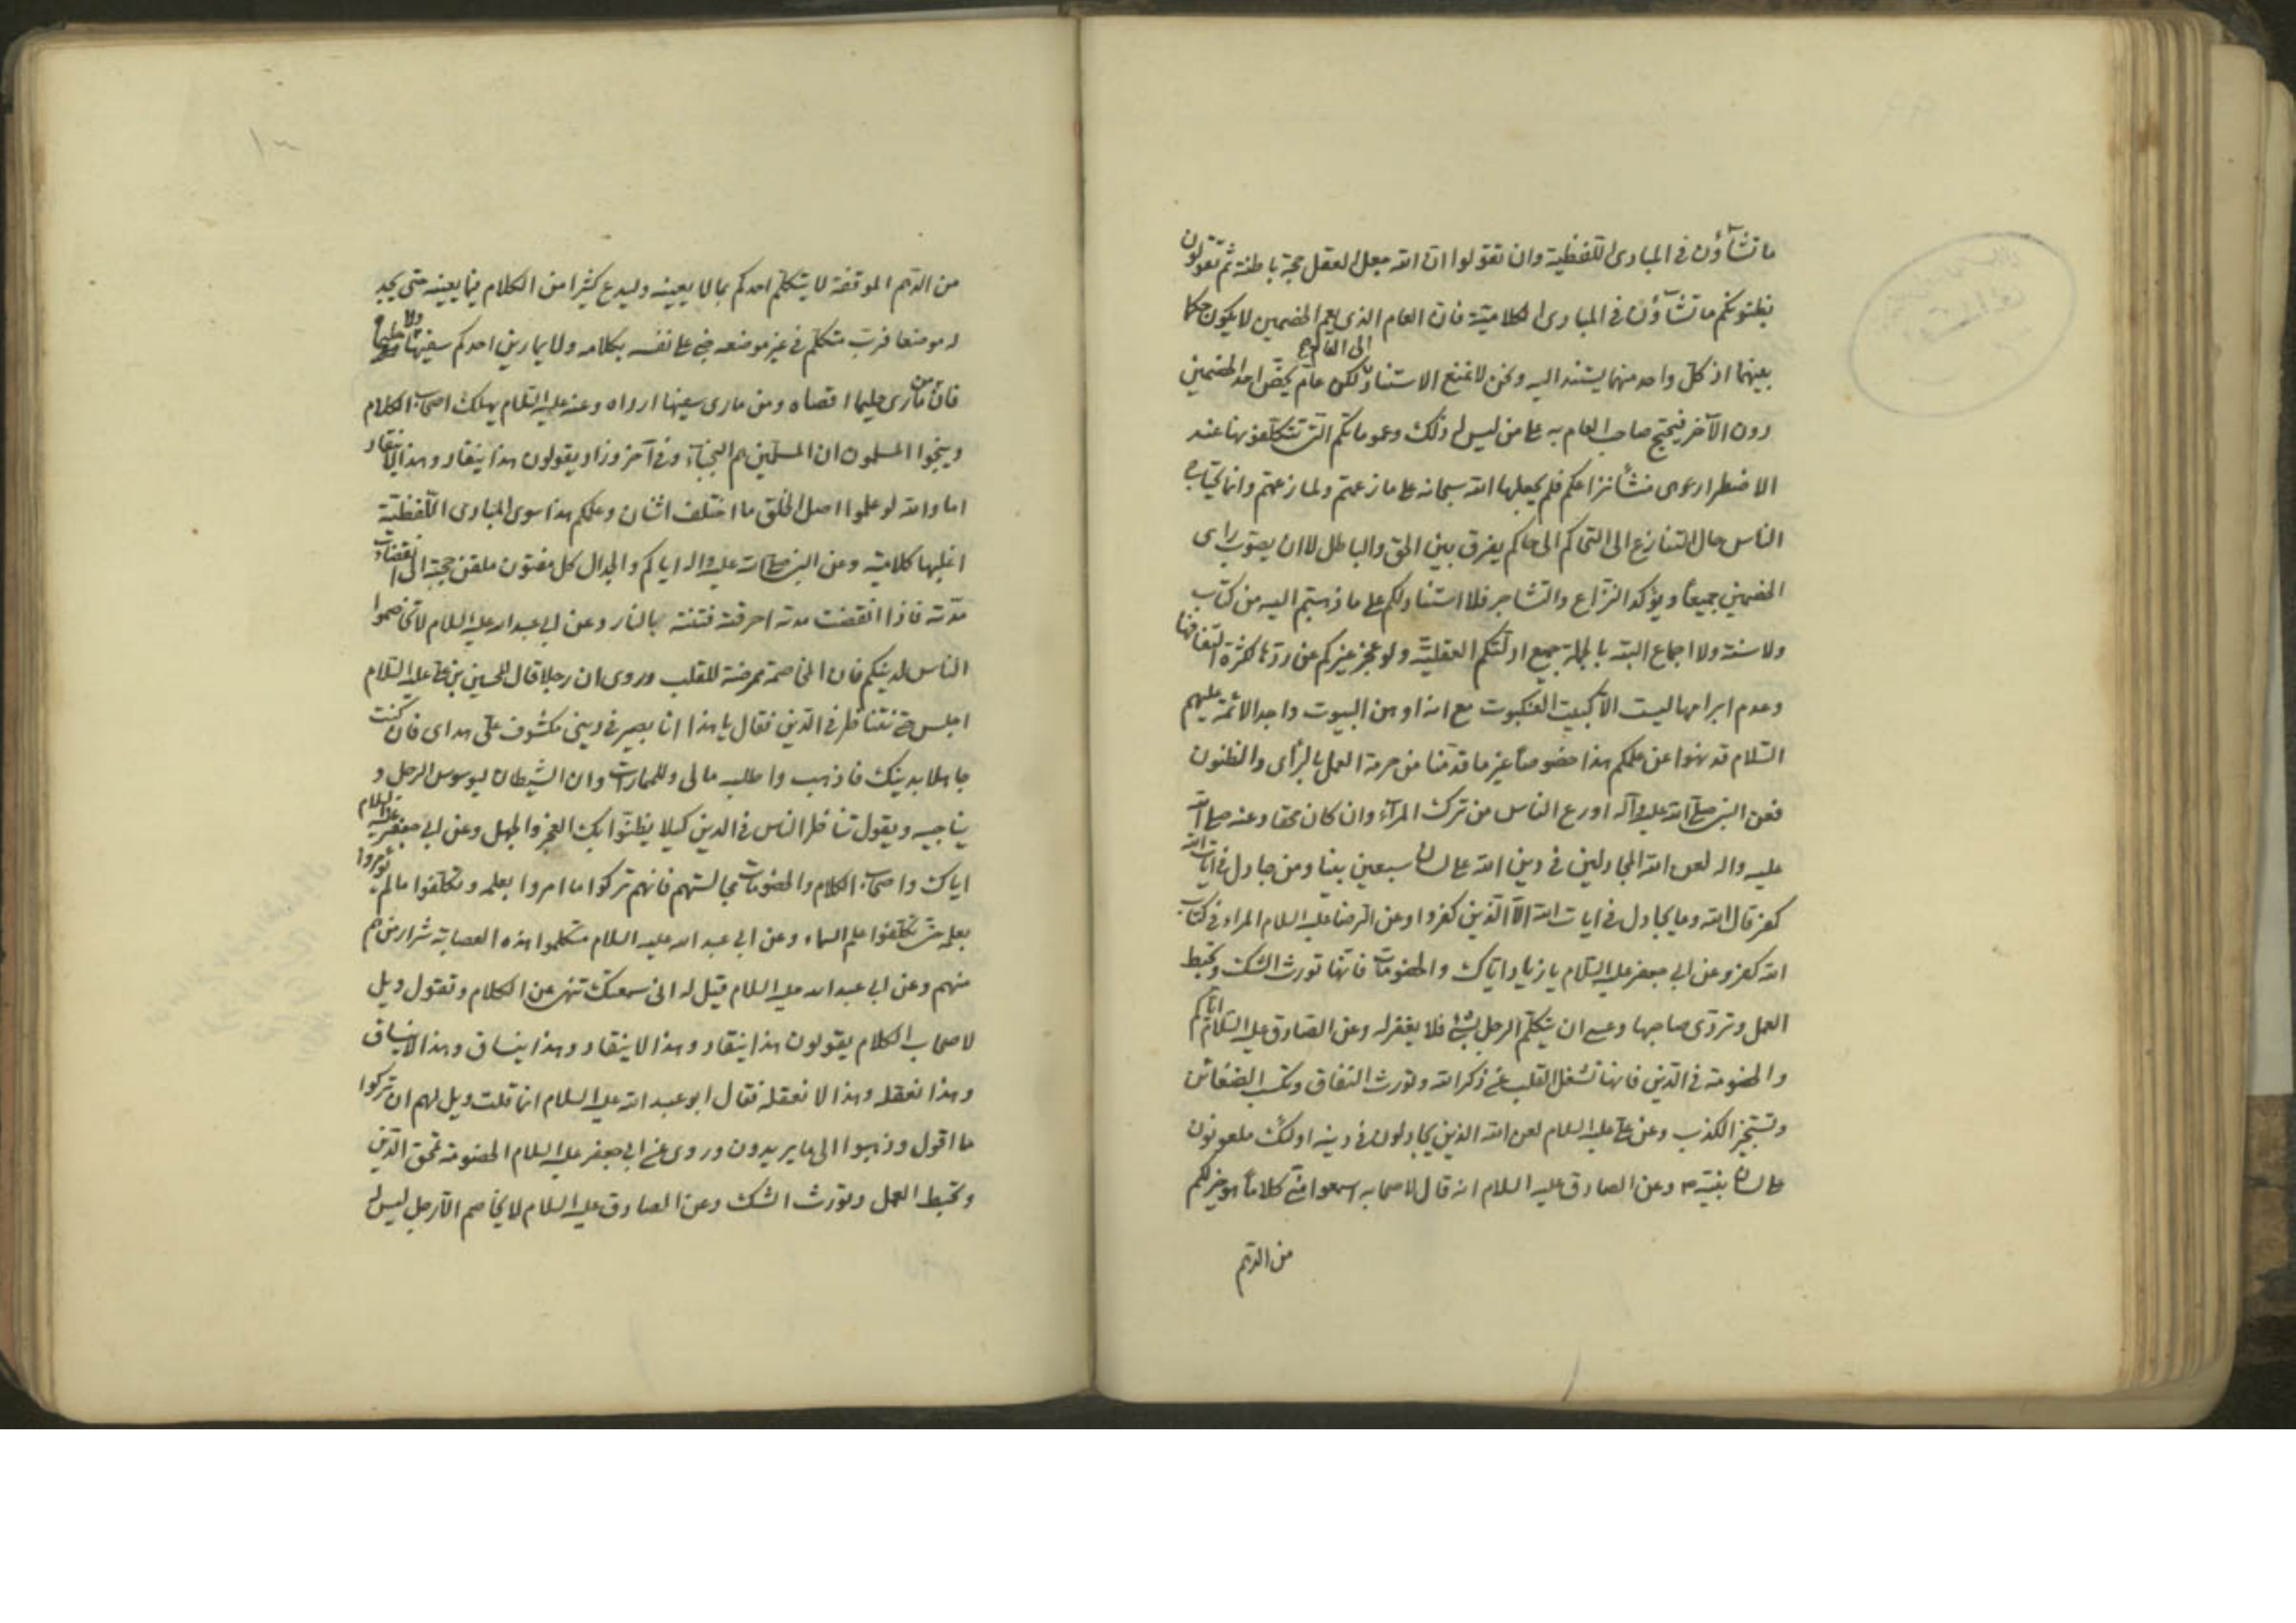 ما تشاؤن في المبادى اللفظية وان تقولوا ان الله جعل العقل حجة باطنة ثم تقولون
بظنونكم ما تشاؤن في المبادى الكلامية فان العام الذى يعم الخصمين لا يكون حكما
بينهما اذ كل واحد منهما يستند اليه ونحن لا نمنع الاستناد الى العام لكن عام يخص احد الخصمين
دون الآخر فيحتج صاحب العام به على من ليس له ذلك وعموماتكم التى تتكلفونها عند
الاضطرار هى منشأ نزاعكم فلم يجعلها الله سبحانه على ما زعمتم ولما زعمتم وانما يحتاج
الناس حال التنازع الى التحاكم الى حاكم يفرق بين الحق والباطل لا ان يصوب راى
الخصمين جميعا ويؤكد النزاع والتشاجر فلا استناد لكم على ما ذهبتم اليه من كتاب
ولا سنة ولا اجماع البتة بالجملة جميع ادلتكم العقلية ولو عجز غيركم عن ردها لكثرة التفافها
وعدم ابرامها ليست الا كبيت العنكبوت مع انه اوهن البيوت واحد الائمة عليهم
السلام قد نهوا عن علمكم هذا خصوصا غير ما قدمنا من حرمة العمل بالرأى والظنون
فعن النبى صلى الله عليه وآله اورع الناس من ترك المرآء وان كان محقا وعنه صلى الله
عليه واله لعن الله المجادلين في دين الله على لسان سبعين نبيا ومن جادل في ايات الله
كفر قال الله وما يجادل في ايات الله الا الذين كفروا وعن الرضا عليه السلام المراء في كتاب
الله كفر وعن ابي جعفر عليه السلام يا زياد اياك والخصومات فانها تورث الشك وتحبط
العمل وتردى صاحبها وعسى ان يتكلم الرجل بشئ فلا يغفر له وعن الصادق عليه السلام اياكم
والخصومة في الدين فانها تشغل القلب عن ذكر الله وتورث النفاق وتكسب الضغائن
وتستجيز الكذب وعن على عليه السلام لعن الله الذين يجادلون في دينه اولئك ملعونون
على لسان نبيه ص وعن الصادق عليه السلام انه قال لاصحابه اسمعوا منى كلاما هو خير لكم
من الدهم
من الدهم الموقفة لا يتكلم احدكم بما لا يعينه وليدع كثيرا من الكلام فيما يعينه حتى يجد
له موضعا فرب متكلم في غير موضعه جنى على نفسه بكلامه ولا يمارين احدكم سفيها ولا حليما
فان من مارى حليما اقصاه ومن مارى سفيها ارداه وعنه عليه السلام يهلك اصحاب الكلام
وينجوا المسلمون ان المسلمين هم النجباء وفي آخر وزاد يقولون هذا ينقاد وهذا لا ينقاد
اما والله لو علموا اصل الخلق ما اختلف اثنان وعلمكم هذا سوى المبادى اللفظية
اغلبها كلامية وعن النبى صلى الله عليه واله اياكم والجدال كل مفتون ملقن حجته الى انقضاء
مدته فاذا انقضت مدته احرقته فتنته بالنار وعن ابي عبدالله عليه السلام لا تخاصموا
الناس لدينكم فان المخاصمة ممرضة للقلب وروى ان رجلا قال للحسين بن على عليه السلام
اجلس حتى نتناظر في الدين فقال يا هذا انا بصير في دينى مكشوف على هداى فان كنت
جاهلا بدينك فاذهب واطلبه مالى وللممارات وان الشيطان ليوسوس الرجل و
يناجيه ويقول تناظر الناس في الدين كيلا يظنوا بك العجز والجهل وعن ابي جعفر عليه السلام
اياك واصحاب الكلام والخصومات مجالستهم فانهم تركوا ما امروا بعلمه وتكلفوا ما لم يؤمروا
بعلمه حتى تكلفوا علم السماء وعن ابي عبد الله عليه السلام متكلموا هذه العصابة شرار من هم
منهم وعن ابي عبد الله عليه السلام قيل له انى سمعتك تنهى عن الكلام وتقول ويل
لاصحاب الكلام يقولون هذا ينقاد وهذا لا ينقاد وهذا ينساق وهذا لا ينساق
وهذا نعقله وهذا لا نعقله فقال ابو عبد الله عليه السلام انما قلت ويل لهم ان تركوا
ما اقول وذهبوا الى ما يريدون وروى عن ابي جعفر عليه السلام الخصومة تمحق الدين
وتحبط العمل وتورث الشك وعن الصادق عليه السلام لا يخاصم الا رجل ليس له